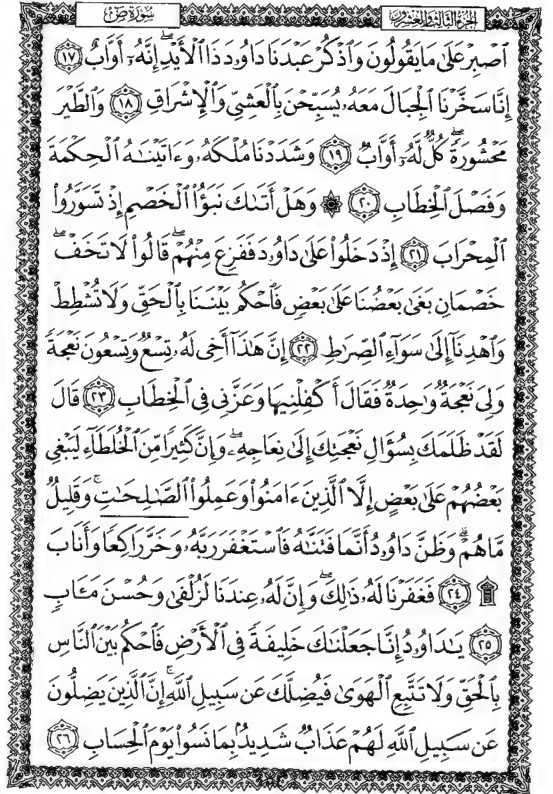 سُورَةُ صٓ الجزء الثالث والعشرون
ٱصۡبِرۡ عَلَىٰ مَا يَقُولُونَ وَٱذۡكُرۡ عَبۡدَنَا دَاوُۥدَ ذَا ٱلۡأَيۡدِۖ إِنَّهُۥٓ أَوَّابٌ ١٧
إِنَّا سَخَّرۡنَا ٱلۡجِبَالَ مَعَهُۥ يُسَبِّحۡنَ بِٱلۡعَشِيِّ وَٱلۡإِشۡرَاقِ ١٨ وَٱلطَّيۡرَ
مَحۡشُورَةٗۖ كُلّٞ لَّهُۥٓ أَوَّابٞ ١٩ وَشَدَدۡنَا مُلۡكَهُۥ وَءَاتَيۡنَٰهُ ٱلۡحِكۡمَةَ
وَفَصۡلَ ٱلۡخِطَابِ ٢٠ ۞ وَهَلۡ أَتَىٰكَ نَبَؤُاْ ٱلۡخَصۡمِ إِذۡ تَسَوَّرُواْ
ٱلۡمِحۡرَابَ ٢١ إِذۡ دَخَلُواْ عَلَىٰ دَاوُۥدَ فَفَزِعَ مِنۡهُمۡۖ قَالُواْ لَا تَخَفۡۖ
خَصۡمَانِ بَغَىٰ بَعۡضُنَا عَلَىٰ بَعۡضٖ فَٱحۡكُم بَيۡنَنَا بِٱلۡحَقِّ وَلَا تُشۡطِطۡ
وَٱهۡدِنَآ إِلَىٰ سَوَآءِ ٱلصِّرَٰطِ ٢٢ إِنَّ هَٰذَآ أَخِي لَهُۥ تِسۡعٞ وَتِسۡعُونَ نَعۡجَةٗ
وَلِيَ نَعۡجَةٞ وَٰحِدَةٞ فَقَالَ أَكۡفِلۡنِيهَا وَعَزَّنِي فِي ٱلۡخِطَابِ ٢٣ قَالَ
لَقَدۡ ظَلَمَكَ بِسُؤَالِ نَعۡجَتِكَ إِلَىٰ نِعَاجِهِۦۖ وَإِنَّ كَثِيرٗا مِّنَ ٱلۡخُلَطَآءِ لَيَبۡغِي
بَعۡضُهُمۡ عَلَىٰ بَعۡضٍ إِلَّا ٱلَّذِينَ ءَامَنُواْ وَعَمِلُواْ ٱلصَّٰلِحَٰتِ وَقَلِيلٞ
مَّا هُمۡۗ وَظَنَّ دَاوُۥدُ أَنَّمَا فَتَنَّٰهُ فَٱسۡتَغۡفَرَ رَبَّهُۥ وَخَرَّۤ رَاكِعٗاۤ وَأَنَابَ
۩ ٢٤ فَغَفَرۡنَا لَهُۥ ذَٰلِكَۖ وَإِنَّ لَهُۥ عِندَنَا لَزُلۡفَىٰ وَحُسۡنَ مَـَٔابٖ
٢٥ يَٰدَاوُۥدُ إِنَّا جَعَلۡنَٰكَ خَلِيفَةٗ فِي ٱلۡأَرۡضِ فَٱحۡكُم بَيۡنَ ٱلنَّاسِ
بِٱلۡحَقِّ وَلَا تَتَّبِعِ ٱلۡهَوَىٰ فَيُضِلَّكَ عَن سَبِيلِ ٱللَّهِۚ إِنَّ ٱلَّذِينَ يَضِلُّونَ
عَن سَبِيلِ ٱللَّهِ لَهُمۡ عَذَابٞ شَدِيدُۢ بِمَا نَسُواْ يَوۡمَ ٱلۡحِسَابِ ٢٦